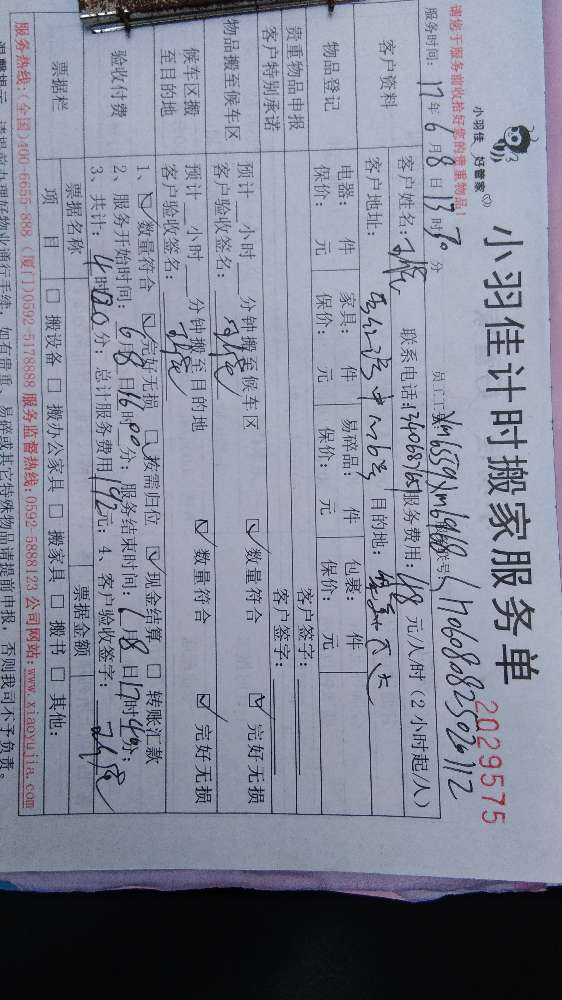 请您于服务前收拾好您的贵重物品！
小羽佳 好管家
小羽佳计时搬家服务单
2029575
服务时间：17年6月8日13时30分 员工工号 联号
客户资料 客户姓名： 联系电话： 服务费用：48元/人/时（2小时起/人）
客户地址： 目的地：
物品登记 电器： 件 家具： 件 易碎品： 件 包裹： 件
保价： 元 保价： 元 保价： 元 保价： 元
贵重物品申报 客户签字：
客户特别承诺 客户签字：
物品搬至候车区 预计__小时__分钟搬至候车区 数量符合 完好无损
客户验收签名：
候车区搬至目的地 预计__小时__分钟搬至目的地 数量符合 完好无损
客户验收签名：
验收付费 1、数量符合 完好无损 按需归位 现金结算 转账汇款
2、服务开始时间：6月8日 服务结束时间：6月8日17时 分；
3、共计：4时00分；总计服务费用192元；4、客户验收签字：
票据栏 票据名称 票据金额
项 目 搬设备 搬办公家具 搬家具 搬书 其他：
服务热线：（全国）400-6655-888（厦门）0592-5178888 服务监督热线：0592-5888123 公司网站：www.xiaoyujia.com
温馨提示：请提前办理好物业通行手续，如有贵重、易碎或其它特殊物品请提前申报，否则我司不予负责。